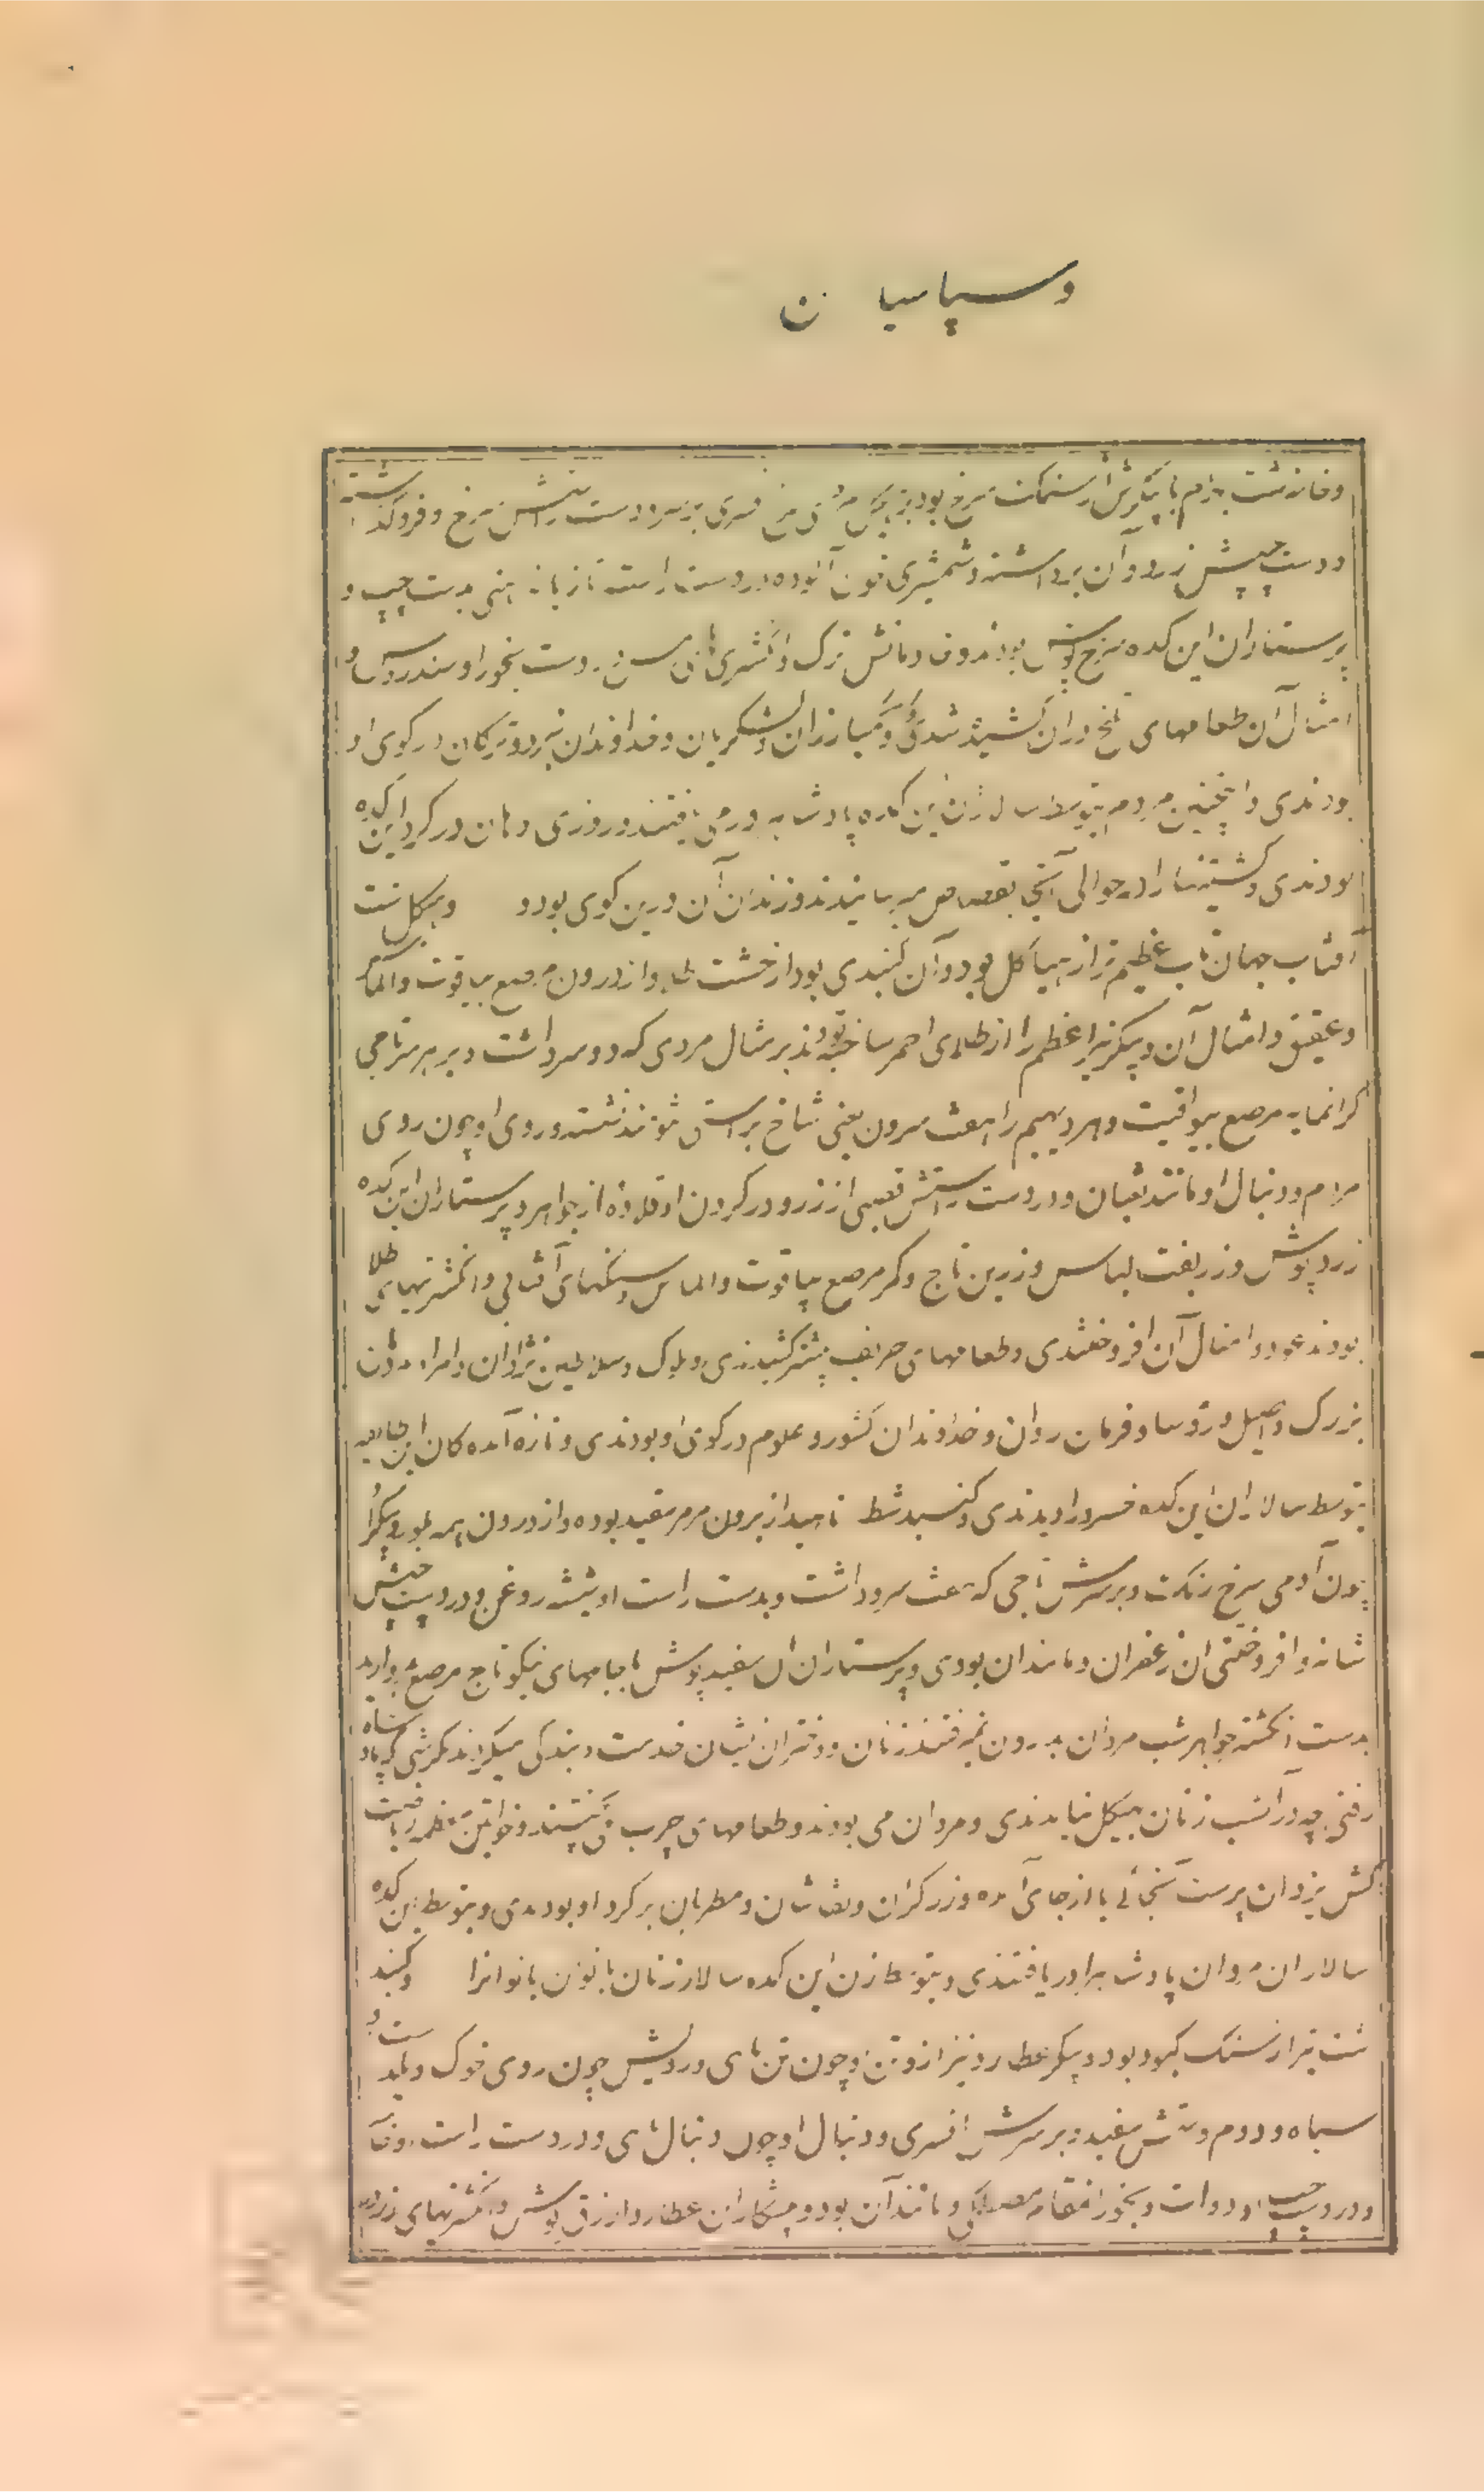 و سپاسیان
و خانه شت بهرام با پیکرش از سنگ سرخ بود بر پیکر مردی سرخ افسری بر سر و دست راستش سرخ و فروگذاشته
و دست چپش زرد و آن برداشته و شمشیری خون آلوده در دست راست تازیانه اهنی بدست چپ و
پرستاران این کده سرخ پوش بودند و خدمانش ترک و انگشتری های مس در دست بخور او سندروس و
امثال آن طعامهای تلخ در ان کشیده شدی و مبارزان و لشکریان و خداوندان نبرد و ترکان در کوی او
بودندی و اینچنین مردم بتوسط سالاران این کده پادشه در می یافتند و روزی دهان در گرد این کده
بودندی و کشتنیها را در حوالی آنجا بقصاص میرسانیدند و زندان آن درین کوی بود و و هیکل شت
آفتاب جهان تاب عظیم تر از هیاکل بود و آن گنبدی بود از خشت طلا و از درون مرصع بیاقوت و الماس
و عقیق و امثال آن و پیکر نیر اعظم را از طلای احمر ساخته بودند بر مثال مردی که دو سر داشت و بر هر سر تاجی
گرانمایه مرصع بیواقیت و هر دیهیم را هفت سرون یعنی شاخ بر اسپی تنومند نشسته و روی او چون روی
مردم و دنبال او مانند ثعبان و در دست راستش قضیبی از زر و در گردن او قلاده از جواهر و پرستاران این کده
زرد پوش و زربفت لباس و زرین تاج و کمر مرصع بیاقوت و الماس و سنگهای آفتابی و انگشتریهای طلا
بودند عود و امثال آن افروختندی و طعامهای حریف بیشتر کشیدندی و ملوک و سلاطین نژادان و امراء و مردمان
بزرگ و اصیل و رؤسا و فرمان روان و خداوندان کشور و علوم در کوی او بودندی و تازه آمده گان این طایفه
بتوسط سالاران این کده خسرو را دیدندی و گنبد شت ناهید از برون مرمر سفید بوده و از درون همه بلور و پیکر
چون آدمی سرخ رنگ و بر سرش تاجی که هفت سرو داشت و بدست راست او شیشه روغن و در دست چپش
شانه و افروختنی ان زعفران و مانند ان بودی و پرستاران ان سفید پوش با جامهای نیکو تاج مرصع بمروارید
بدست انگشتر جواهر شب مردان بدرون نمیرفتند زنان و دختران ایشان خدمت و بندگی میکردند مگر شبی که پادشاه
رفتی چه در آنشب زنان بهیکل نیامدندی و مردان می بودند و طعامهای چرب
کش یزدان پرست آنجائی یا از جای آمده و زرگران و نقاشان و مطربان بر گرد او بودندی و بتوسط این کده
سالاران مردان پادشه را دریافتندی و بتوسط زن این کده سالار زنان بانوان بانو را و گنبد
شت تیر از سنگ کبود بود و پیکر عطارد نیز از و تن او چون تن ماهی و رویش چون روی خوک و یک دست او
سیاه و دوم دستش سفید و بر سرش افسری و دنبال او چون دنبال ماهی و در دست راست او خامه
و در دست چپ او دوات و بخور انمقام مصطکی و مانند آن بود و پیشکاران عطارد ازرق پوش و انگشتریهای زر